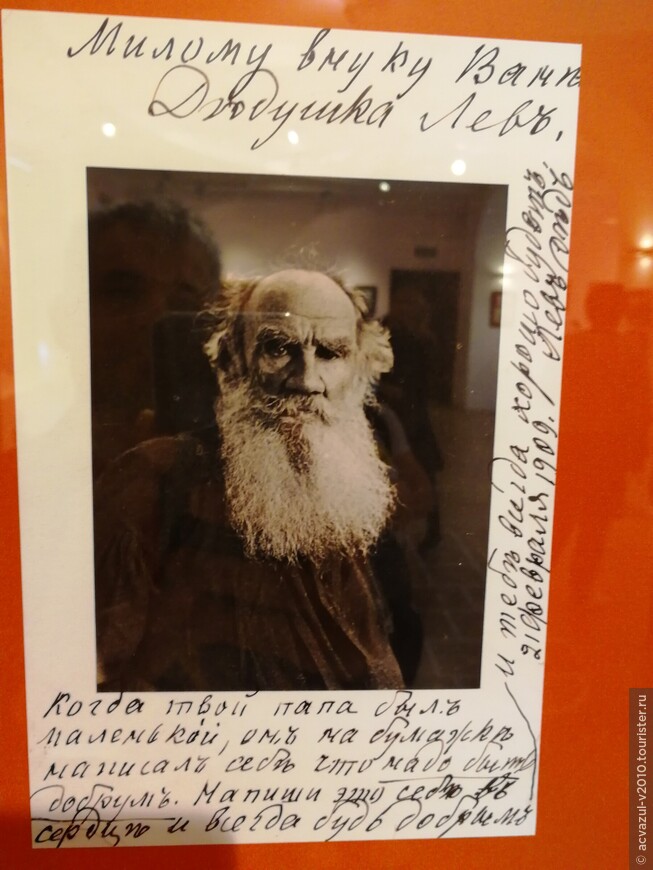 Милому внуку Ванѣ
Дѣдушка Левъ.
Когда твой папа былъ
маленькой, онъ на бумажкѣ
написалъ себѣ что надо быть
добрумъ. Напиши это себѣ въ
сердцѣ и всегда будь добрымъ
и тебѣ всегда хорошо будетъ.
21 февраля 1909. / Левъ дѣдъ
© acvazul-v2010.tourister.ru